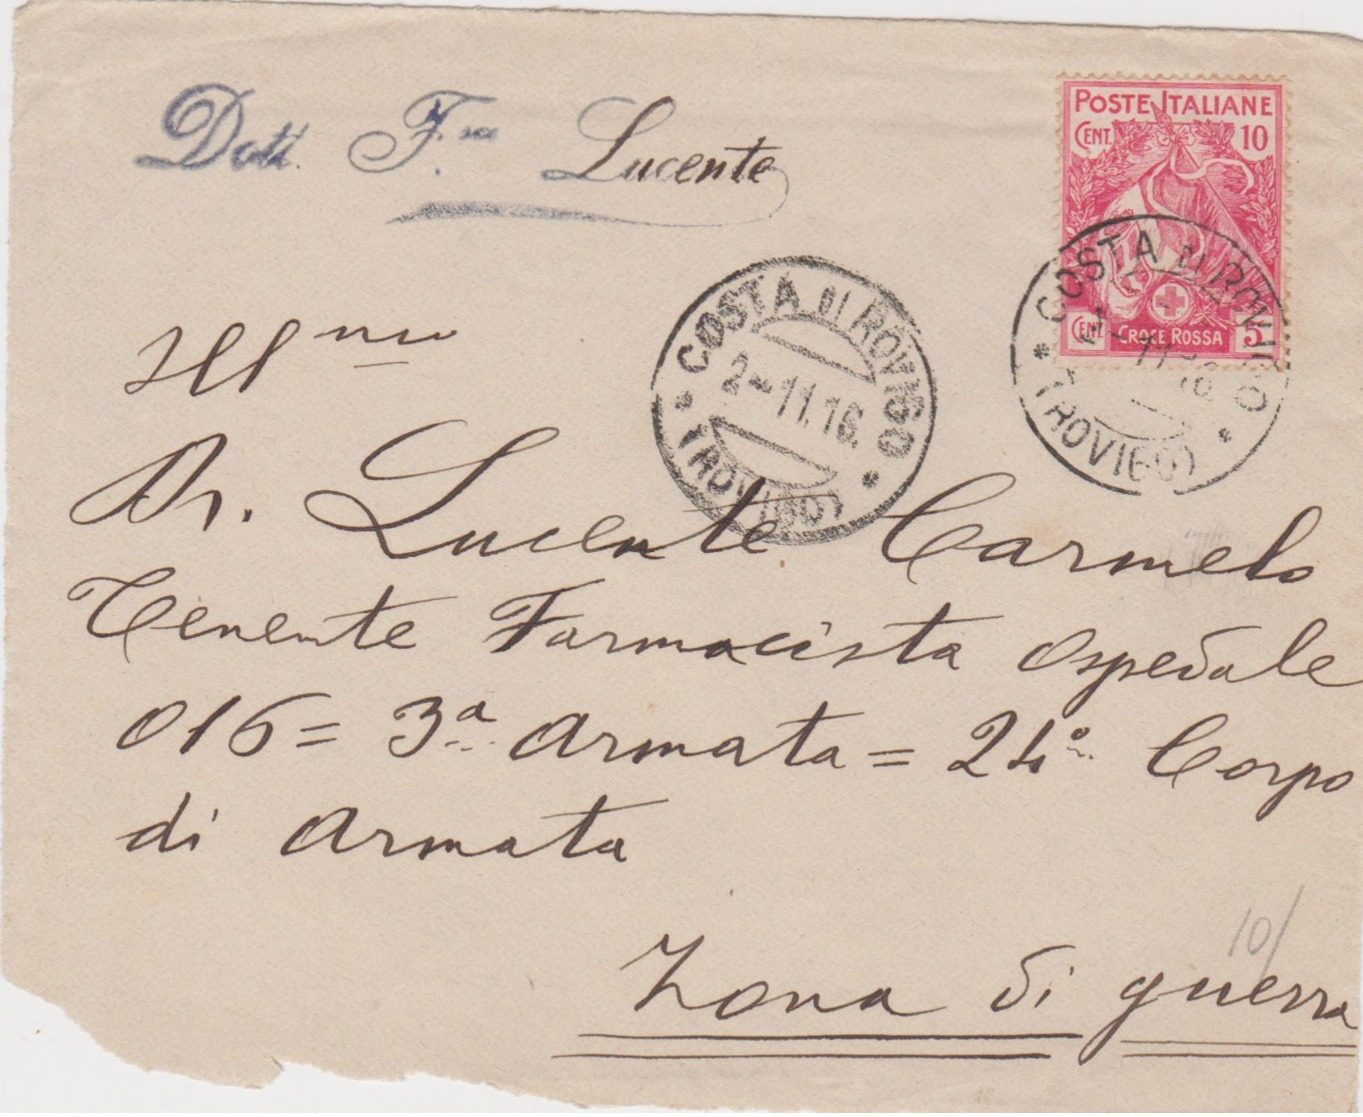 Dott. F.sco Lucente
POSTE ITALIANE
CENT. 10
CENT. 5
CROCE ROSSA
COSTA DI ROVIGO
2-11.16
(ROVIGO)
COSTA DI ROVIGO
2-11.16.
(ROVIGO)
Ill mo
Dr. Lucente Carmelo
Tenente Farmacista Ospedale
016 = 3ª Armata = 24° Corpo
di Armata
10/
Zona di guerra